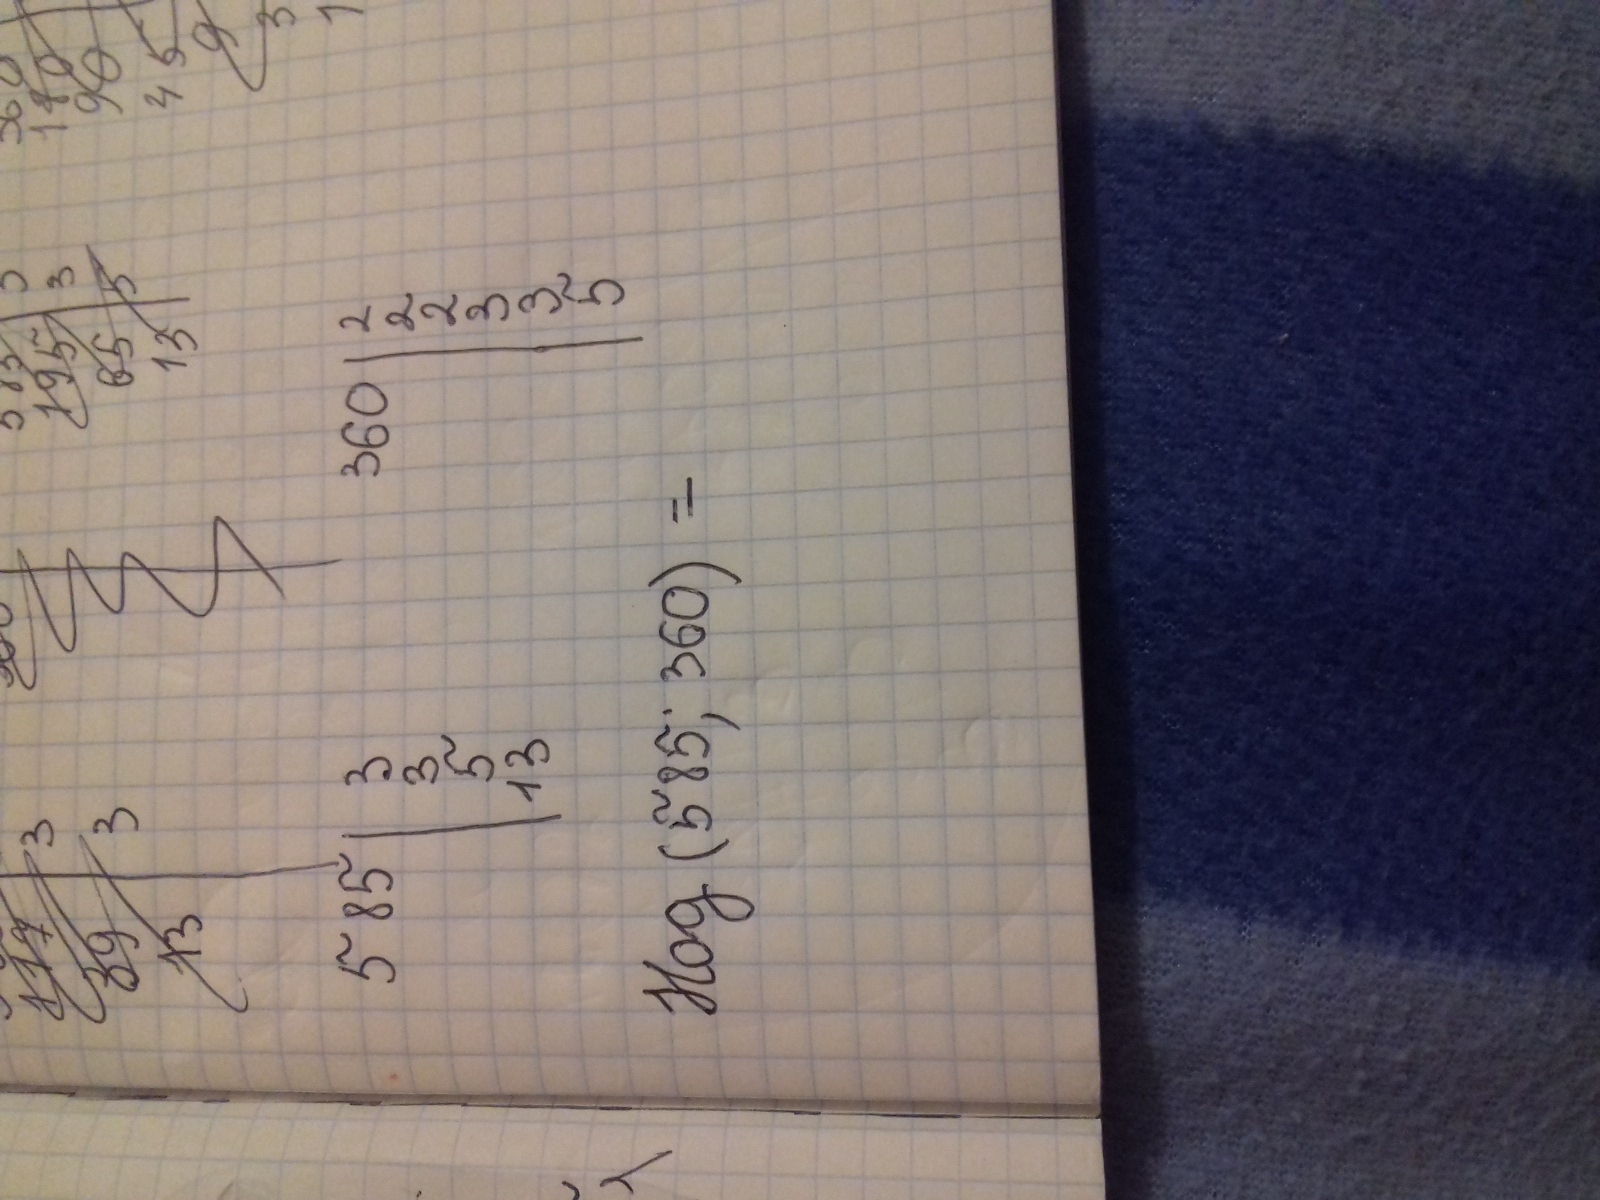 117 3
39 3
13
195 3
65 5
13
360
180
90
45
9
3
1
585 3
3
5
13
360 2
2
2
3
3
5
Нод (585; 360) =